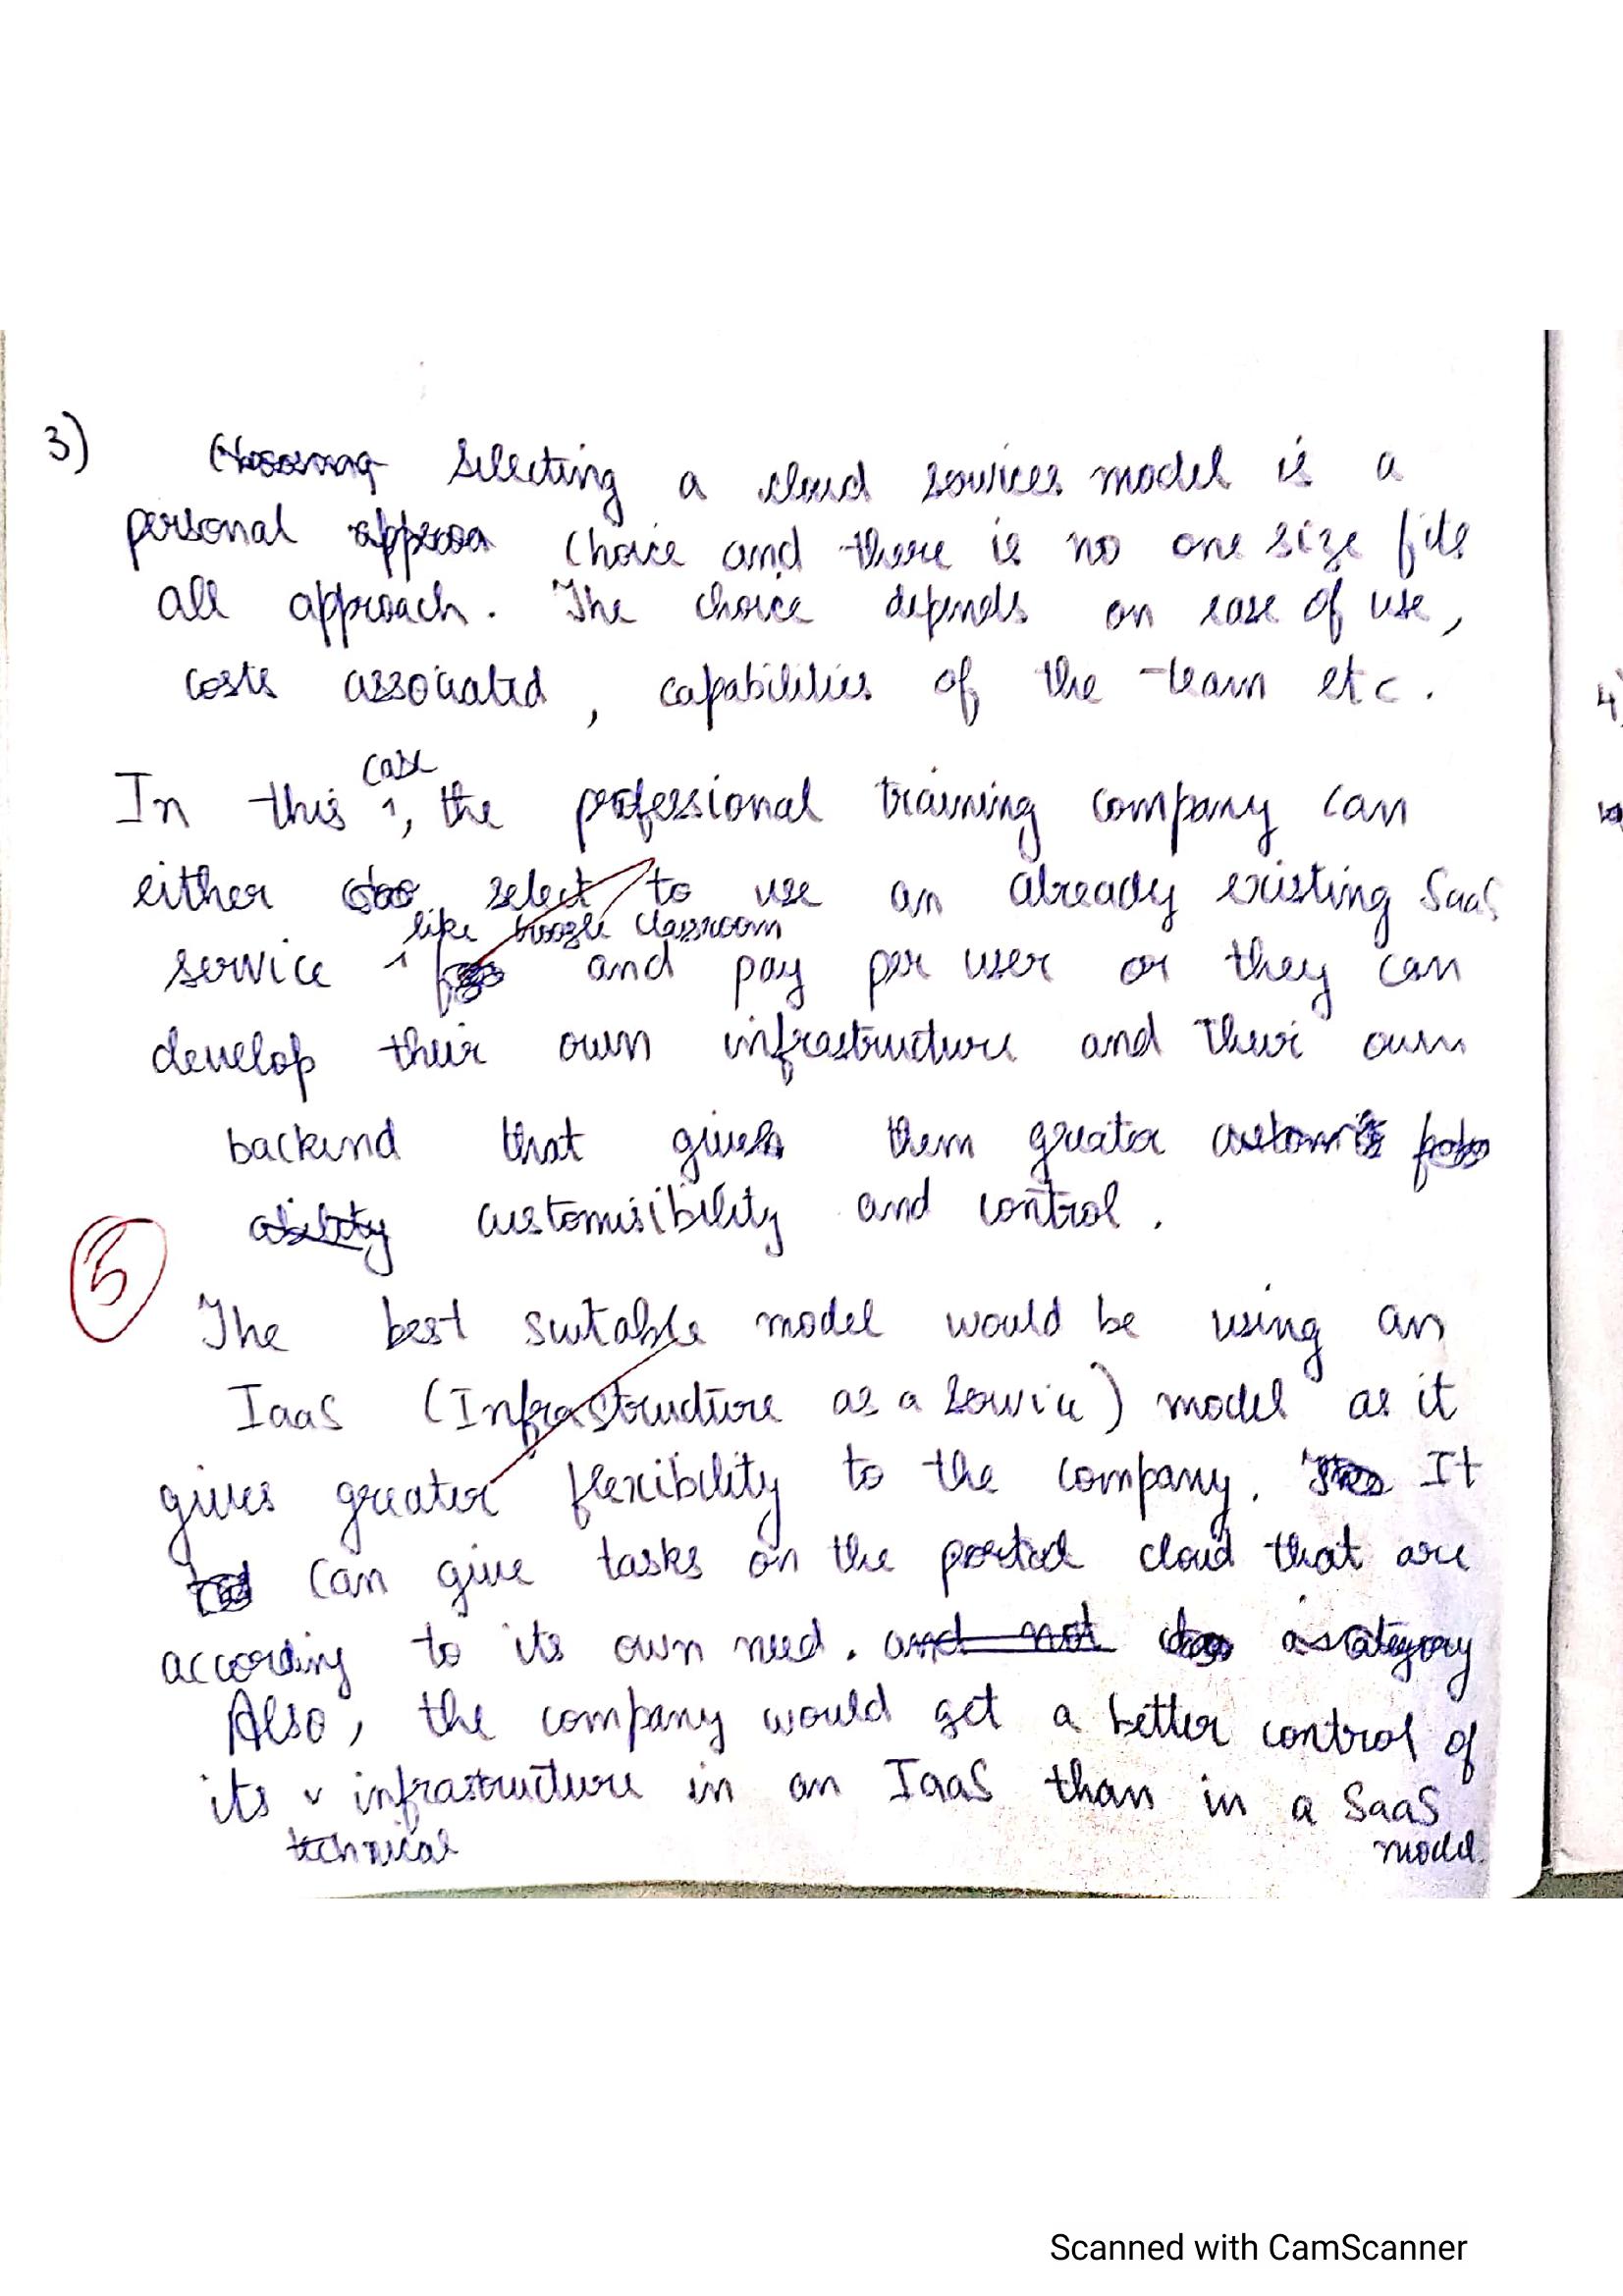 3) Choosing Selecting a cloud services model is a
personal approa choice and there is no one size fits
all approach. The choice depends on ease of use,
costs associated, capabilities of the team etc.
case
In this ^, the professional training company can
either select to use an already existing SaaS
like Google Classroom
service ^ and pay per user or they can
develop their own infrastructure and their own
backend that gives them greater customis
ability customisibility and control.
5
The best suitable model would be using an
IaaS (Infrastructure as a Service) model as it
gives greater flexibility to the company. It
can give tasks on the portal cloud that are
according to its own need. and not category
Also, the company would get a better control of
its v infrastructure in an IaaS than in a SaaS
technical model.
4)
Scanned with CamScanner